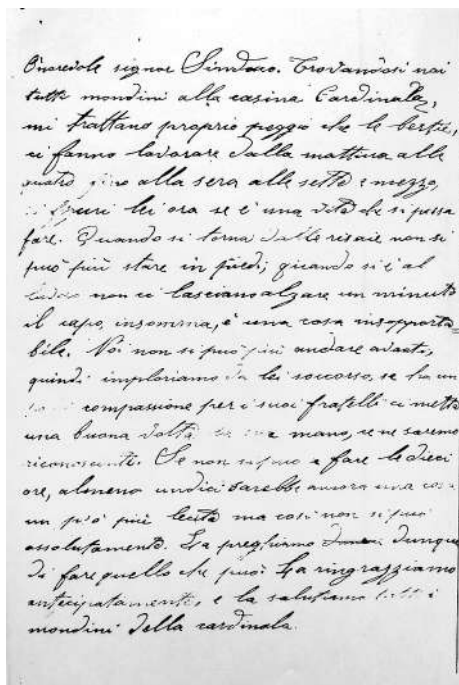 Onorevole signor Sindaco. Trovandosi noi
tutti mondini alla casina Cardinala,
mi trattano proprio peggio che le bestie,
ci fanno lavorare dalla mattina alle
quatro fino alla sera alle sette e mezzo,
si figuri lei ora se è una vita che si possa
fare. Quando si torna dalle risaie non si
può più stare in piedi; quando si è al
lavoro non ci lasciano alzare un minuto
il capo, insomma, è una cosa insopporta=
bile. Noi non si può più andare avanti,
quindi imploriamo da lei soccorso, se ha un
compassione per i suoi fratelli ci metta
una buona volta la sua mano, ce ne saremo
riconoscenti. Se non a fare le dieci
ore, almeno undici sarebbe ancora una cosa
un pò più lecita ma così non si può
assolutamente. La preghiamo dunque
di fare quello che può. La ringrazziamo
antecipatamente, e la salutiamo tutti i
mondini della cardinala.